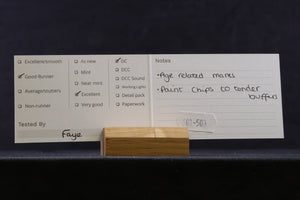 Excellent/smooth
Good Runner
Average/stutters
Non-runner
Tested By
Faye
As new
Mint
Near mint
Excellent
Very good
DC
DCC
DCC Sound
Working Lights
Detail pack
Paperwork
Notes
• Age related marks
• Paint chips to tender
buffers